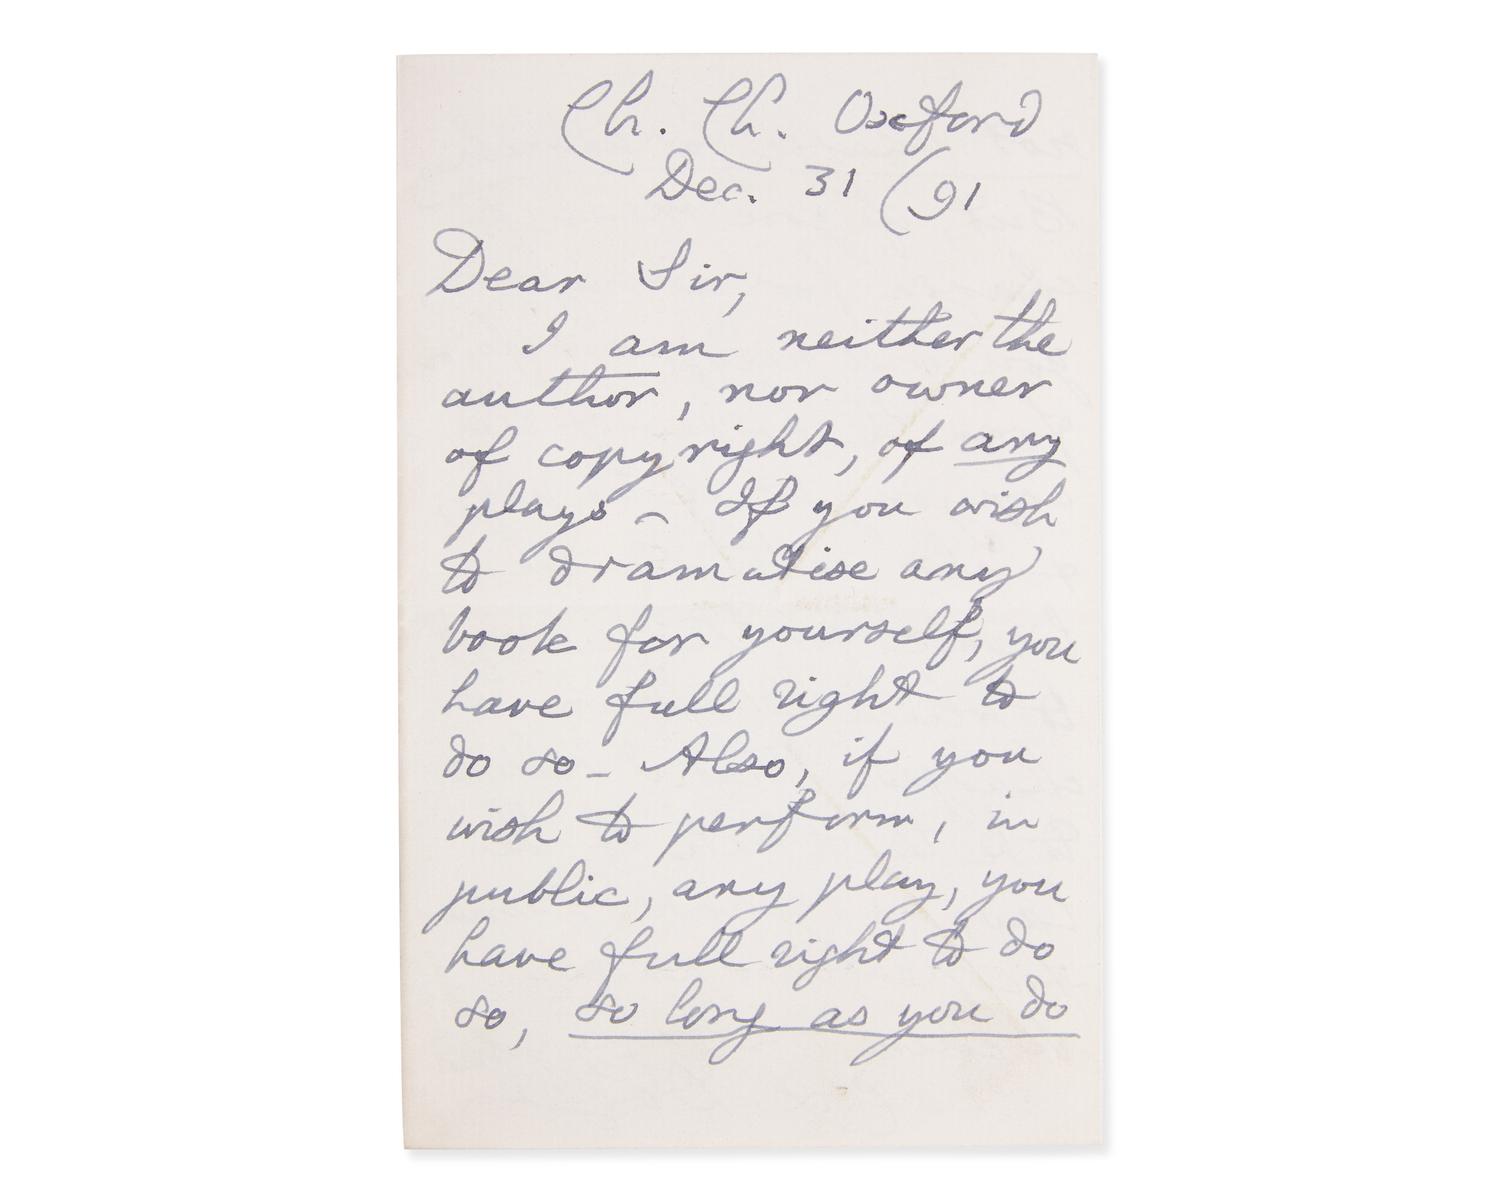 Ch. Ch. Oxford
Dec. 31 (91
Dear Sir,
I am neither the
author, nor owner
of copyright, of any
plays - If you wish
to dramatise any
book for yourself, you
have full right to
do so - Also, if you
wish to perform, in
public, any play, you
have full right to do
so, so long as you do